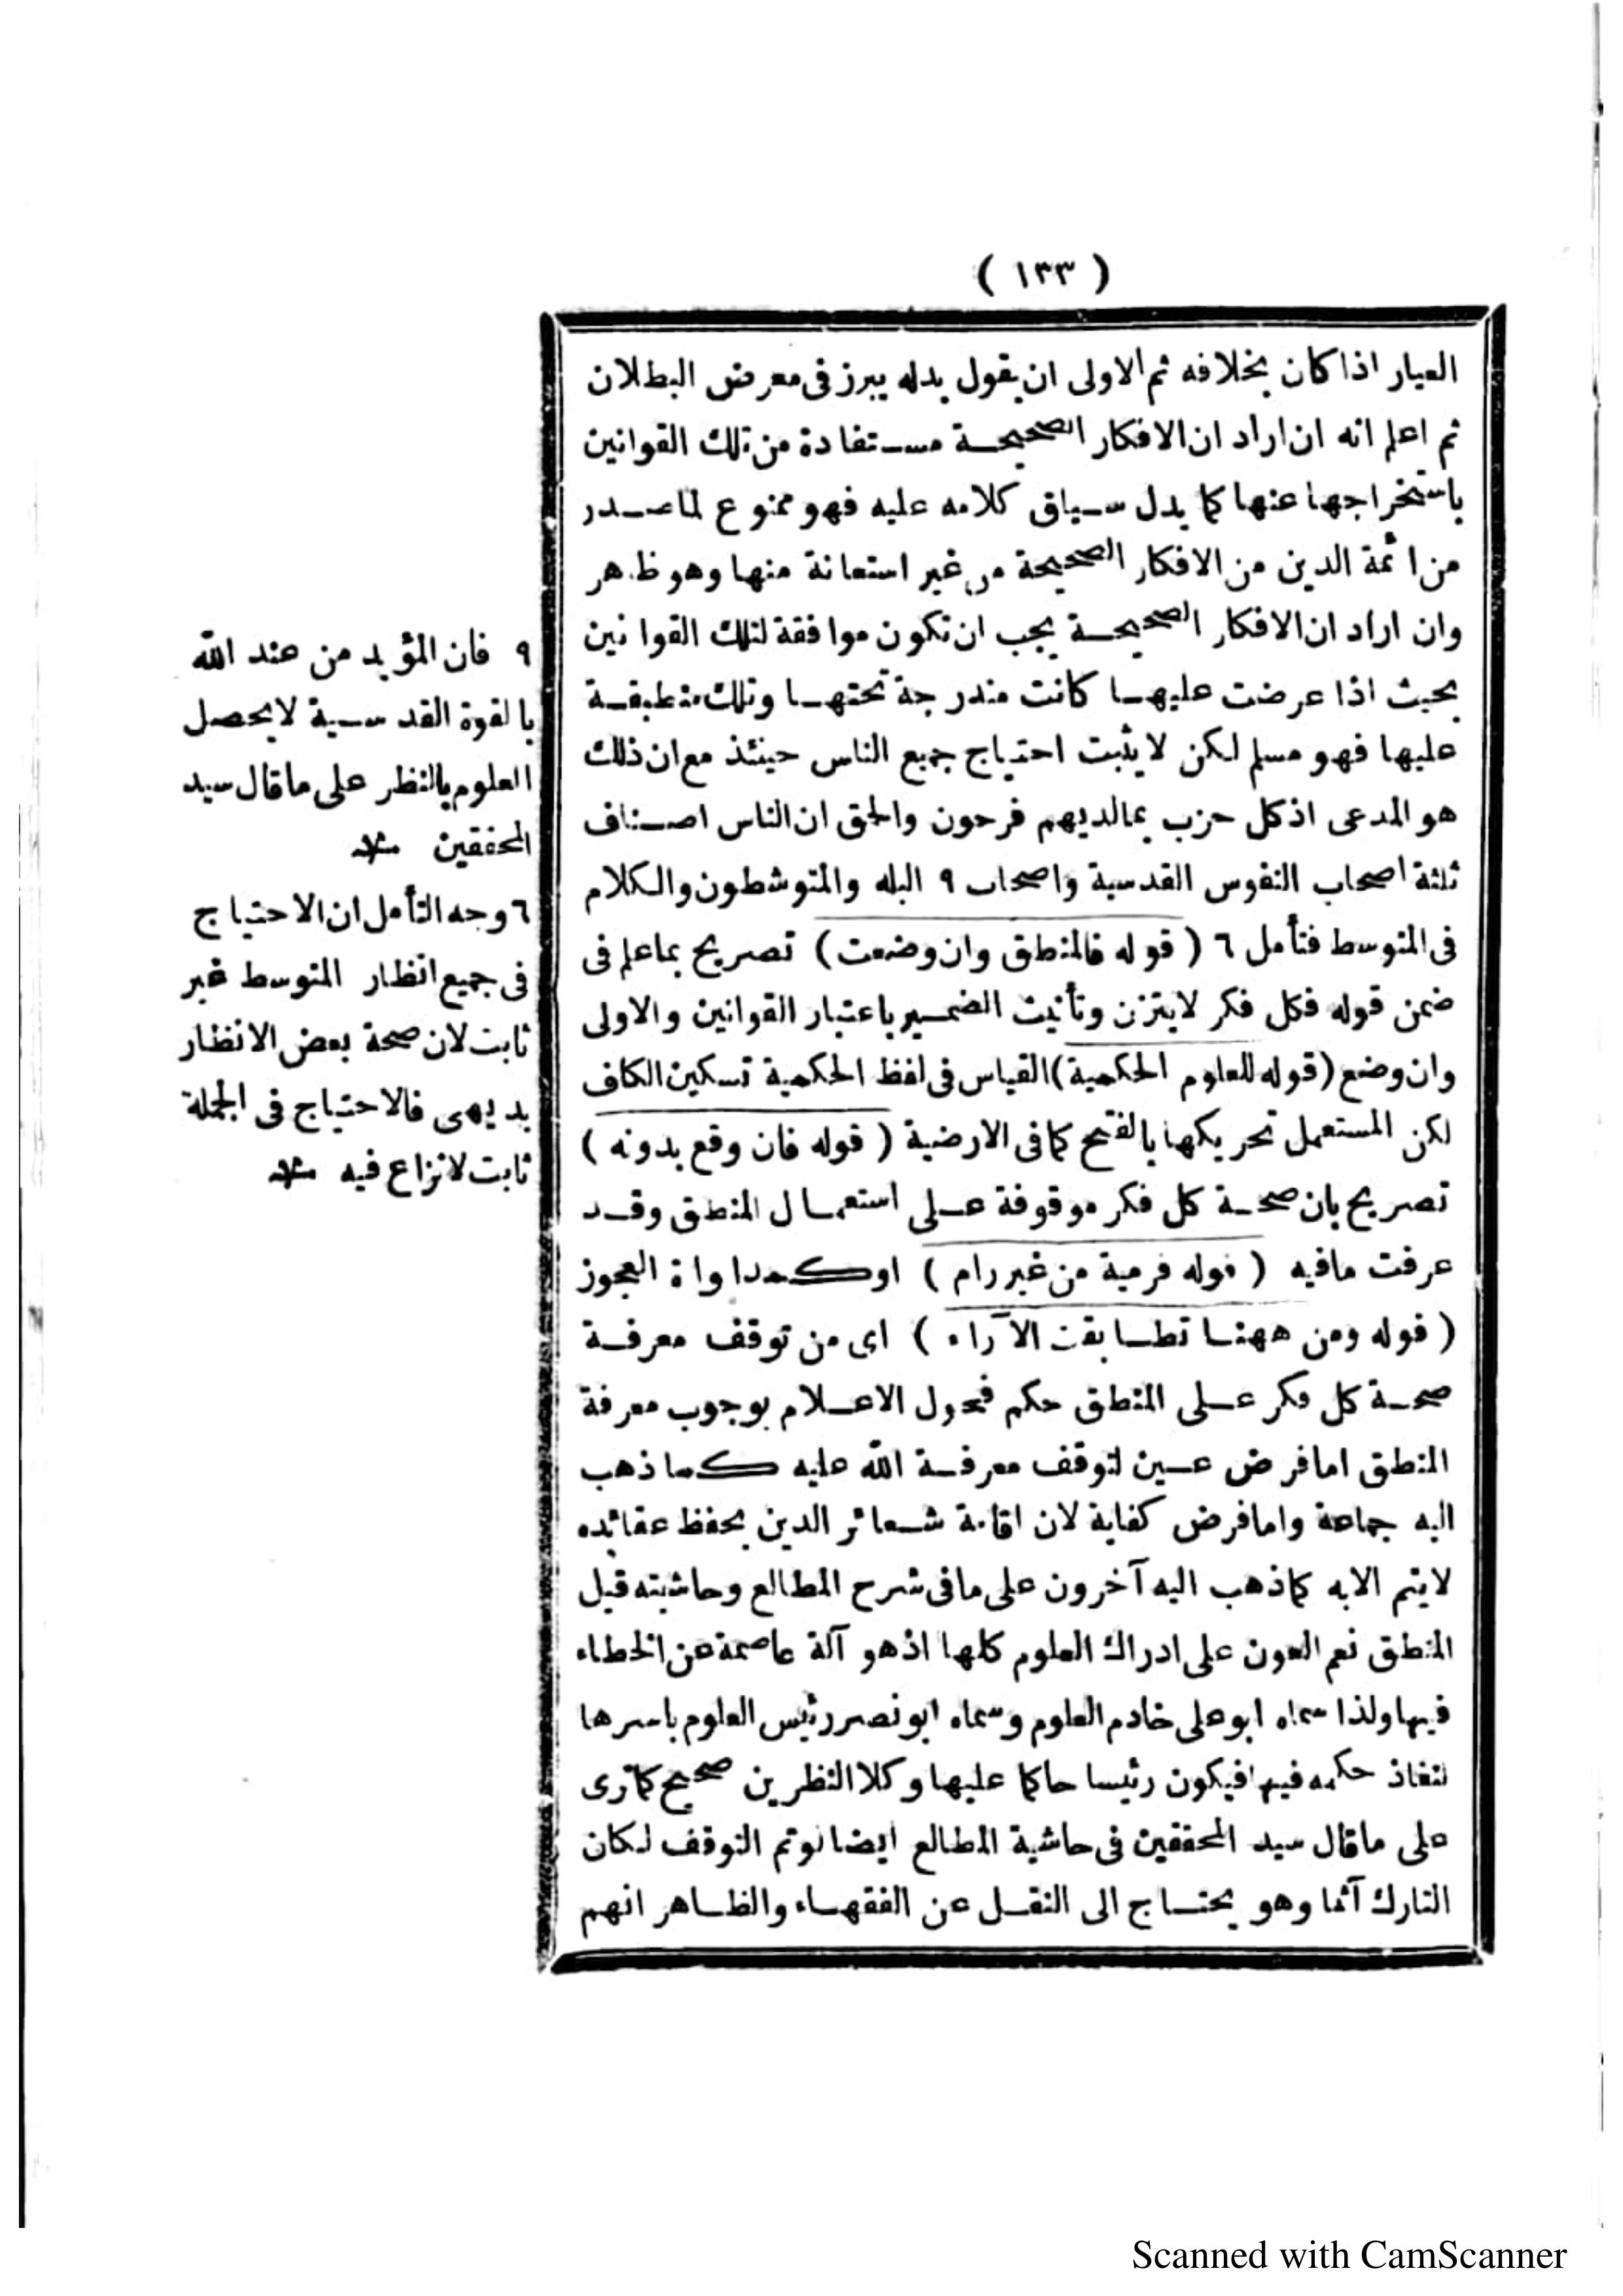 ( ١٣٣ )
العيار اذا كان بخلافه ثم الاولى ان يقول بدله يبرز فى معرض البطلان
ثم اعلم انه ان اراد ان الافكار الصحيحة مستفادة من تلك القوانين
باستخراجها عنها كما يدل سياق كلامه عليه فهو ممنوع لما صدر
من ائمة الدين من الافكار الصحيحة من غير استعانة منها وهو ظاهر
وان اراد ان الافكار الصحيحة يجب ان تكون موافقة لتلك القوانين
بحيث اذا عرضت عليها كانت مندرجة تحتها وتلك منطبقة
عليها فهو مسلم لكن لا يثبت احتياج جميع الناس حينئذ مع ان ذلك
هو المدعى اذ كل حزب بمالديهم فرحون والحق ان الناس اصناف
ثلثة اصحاب النفوس القدسية واصحاب ٩ البله والمتوسطون والكلام
فى المتوسط فتأمل ٦ ( قوله فالمنطق وان وضعت ) تصريح بما علم فى
ضمن قوله فكل فكر لا يتزن وتأنيث الضمير باعتبار القوانين والاولى
وان وضع ( قوله للعلوم الحكمية ) القياس فى لفظ الحكمية تسكين الكاف
لكن المستعمل تحريكها بالفتح كما فى الارضية ( قوله فان وقع بدونه )
تصريح بان صحة كل فكر موقوفة على استعمال المنطق وقد
عرفت مافيه ( قوله فرمية من غير رام ) او كمداواة العجوز
( قوله ومن ههنا تطابقت الآراء ) اى من توقف معرفة
صحة كل فكر على المنطق حكم فحول الاعلام بوجوب معرفة
المنطق اما فرض عين لتوقف معرفة الله عليه كما ذهب
اليه جماعة واما فرض كفاية لان اقامة شعائر الدين بحفظ عقائده
لا يتم الا به كما ذهب اليه آخرون على ما فى شرح المطالع وحاشيته قيل
المنطق نعم العون على ادراك العلوم كلها اذ هو آلة عاصمة عن الخطاء
فيها ولذا سماه ابو على خادم العلوم وسماه ابو نصر رئيس العلوم باسرها
لنفاذ حكمه فيها فيكون رئيسا حاكما عليها وكلا النظرين صحيح كما ترى
على ما قال سيد المحققين فى حاشية المطالع ايضا لو تم التوقف لكان
التارك آثما وهو يحتاج الى النقل عن الفقهاء والظاهر انهم
٩ فان المؤيد من عند الله
بالقوة القدسية لا يحصل
العلوم بالنظر على ما قال سيد
المحققين منه
٦ وجه التأمل ان الاحتياج
فى جميع انظار المتوسط غير
ثابت لان صحة بعض الانظار
بديهى فالاحتياج فى الجملة
ثابت لا نزاع فيه منه
Scanned with CamScanner